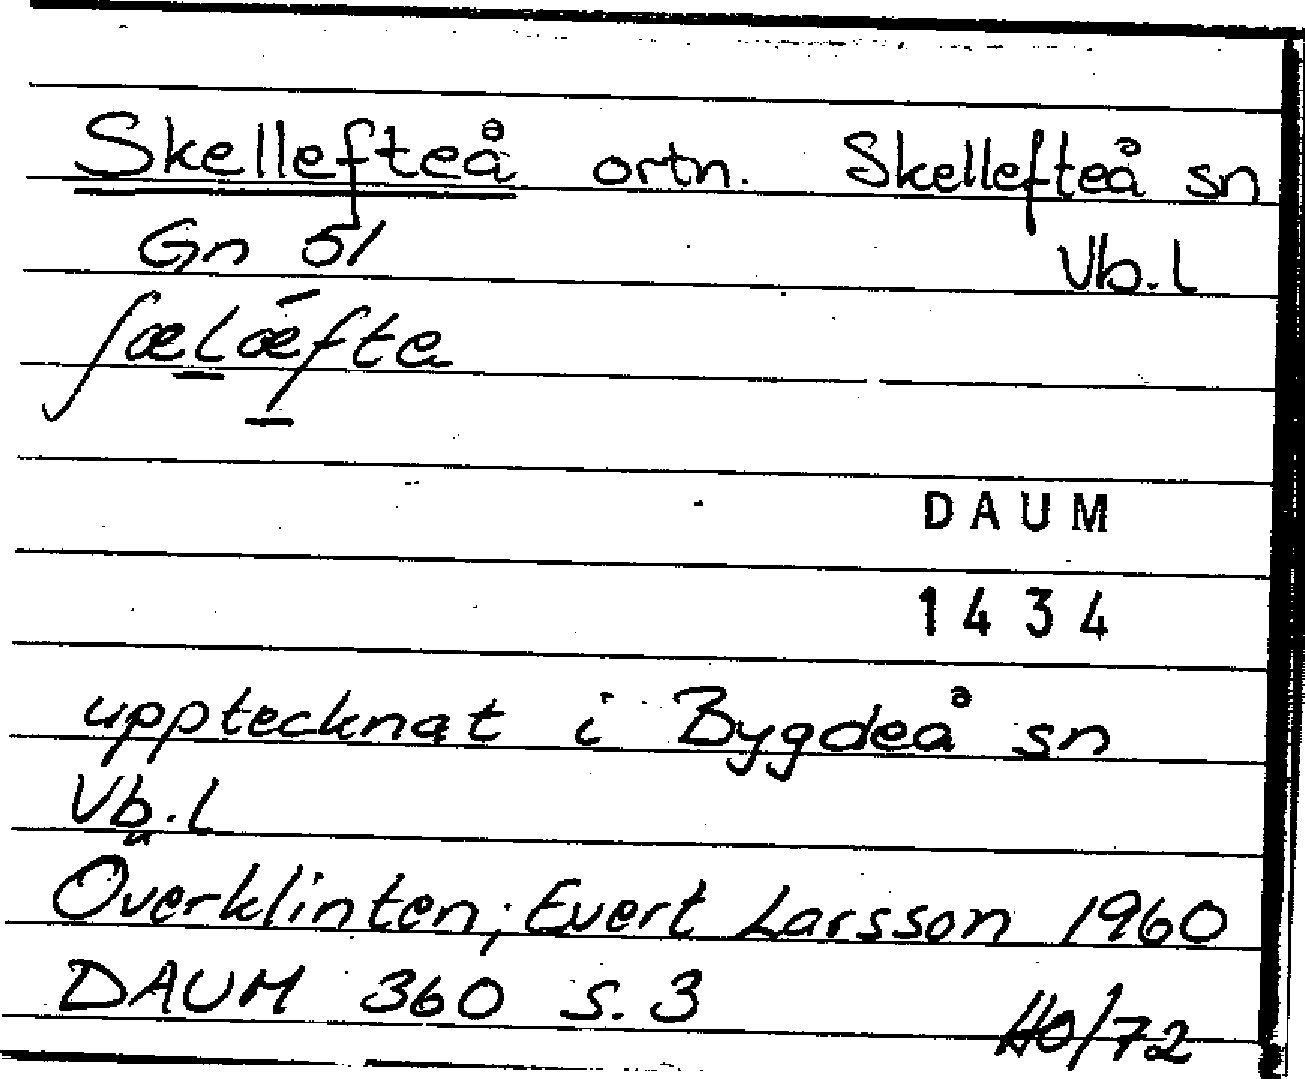 Skellefteå ortn. Skellefteå sn
Gn 51 Vb.l
ʃælǽfta
DAUM
1434
upptecknat i Bygdeå sn
Vb.l
Överklinten; Evert Larsson 1960
DAUM 360 s.3
HO/72